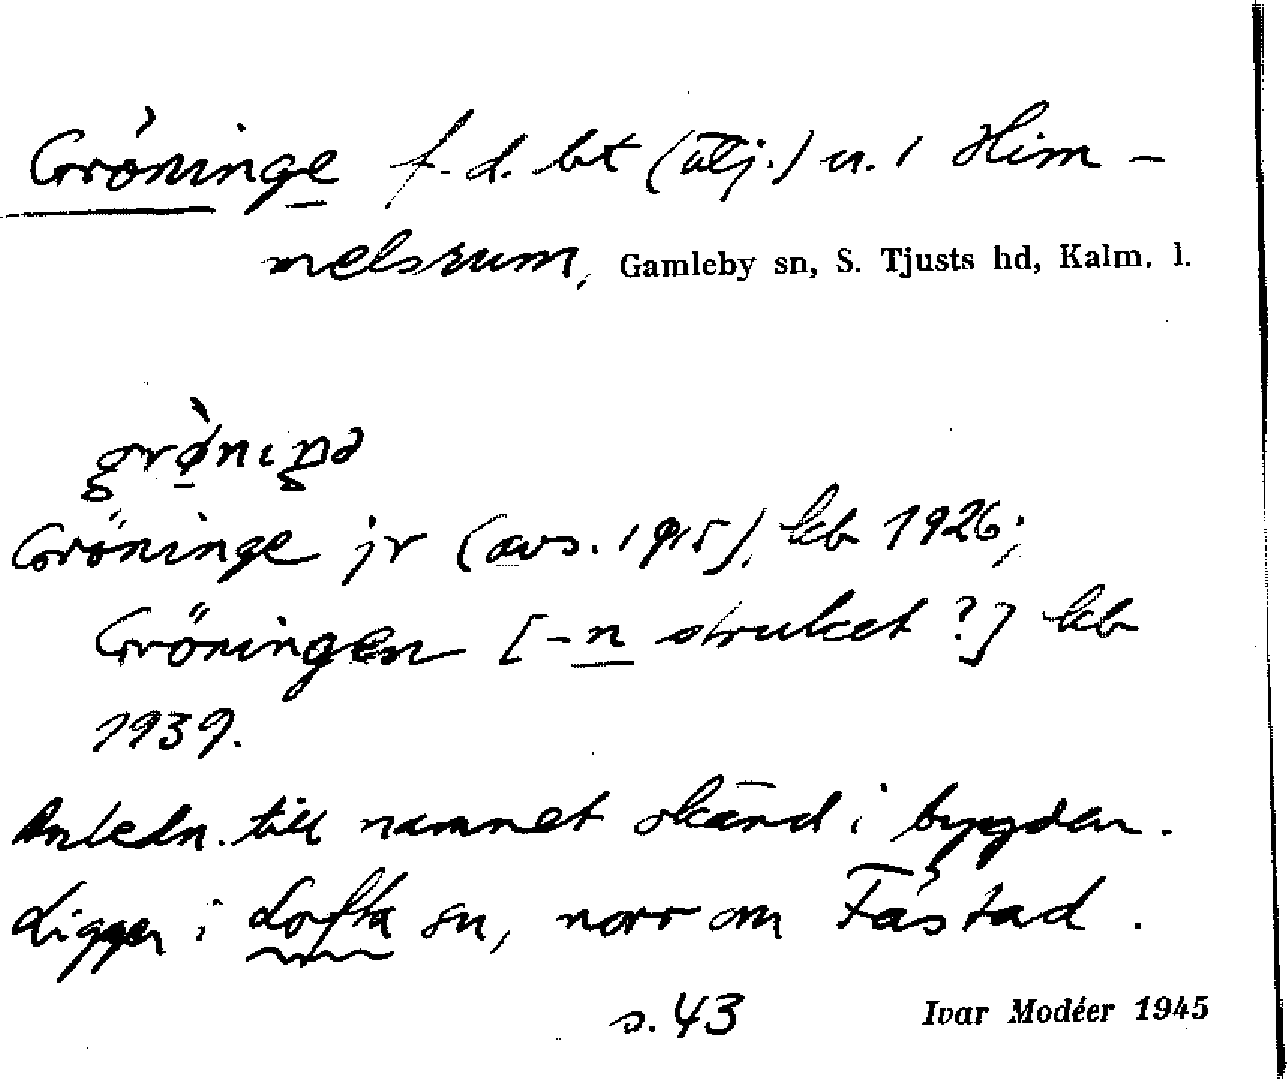 Gröninge f. d. bt (älj.) u. 1 Him-
melsrum, Gamleby sn, S. Tjusts hd, Kalm. l.
grø̀niŋə
Gröninge jr (avs. 1915), kb 1926;
Gröningen [-n struket ?] kb
1939.
Anledn. till namnet okänd i bygden.
Ligger i Lofta sn, norr om Fåstad.
s. 43 Ivar Modéer 1945